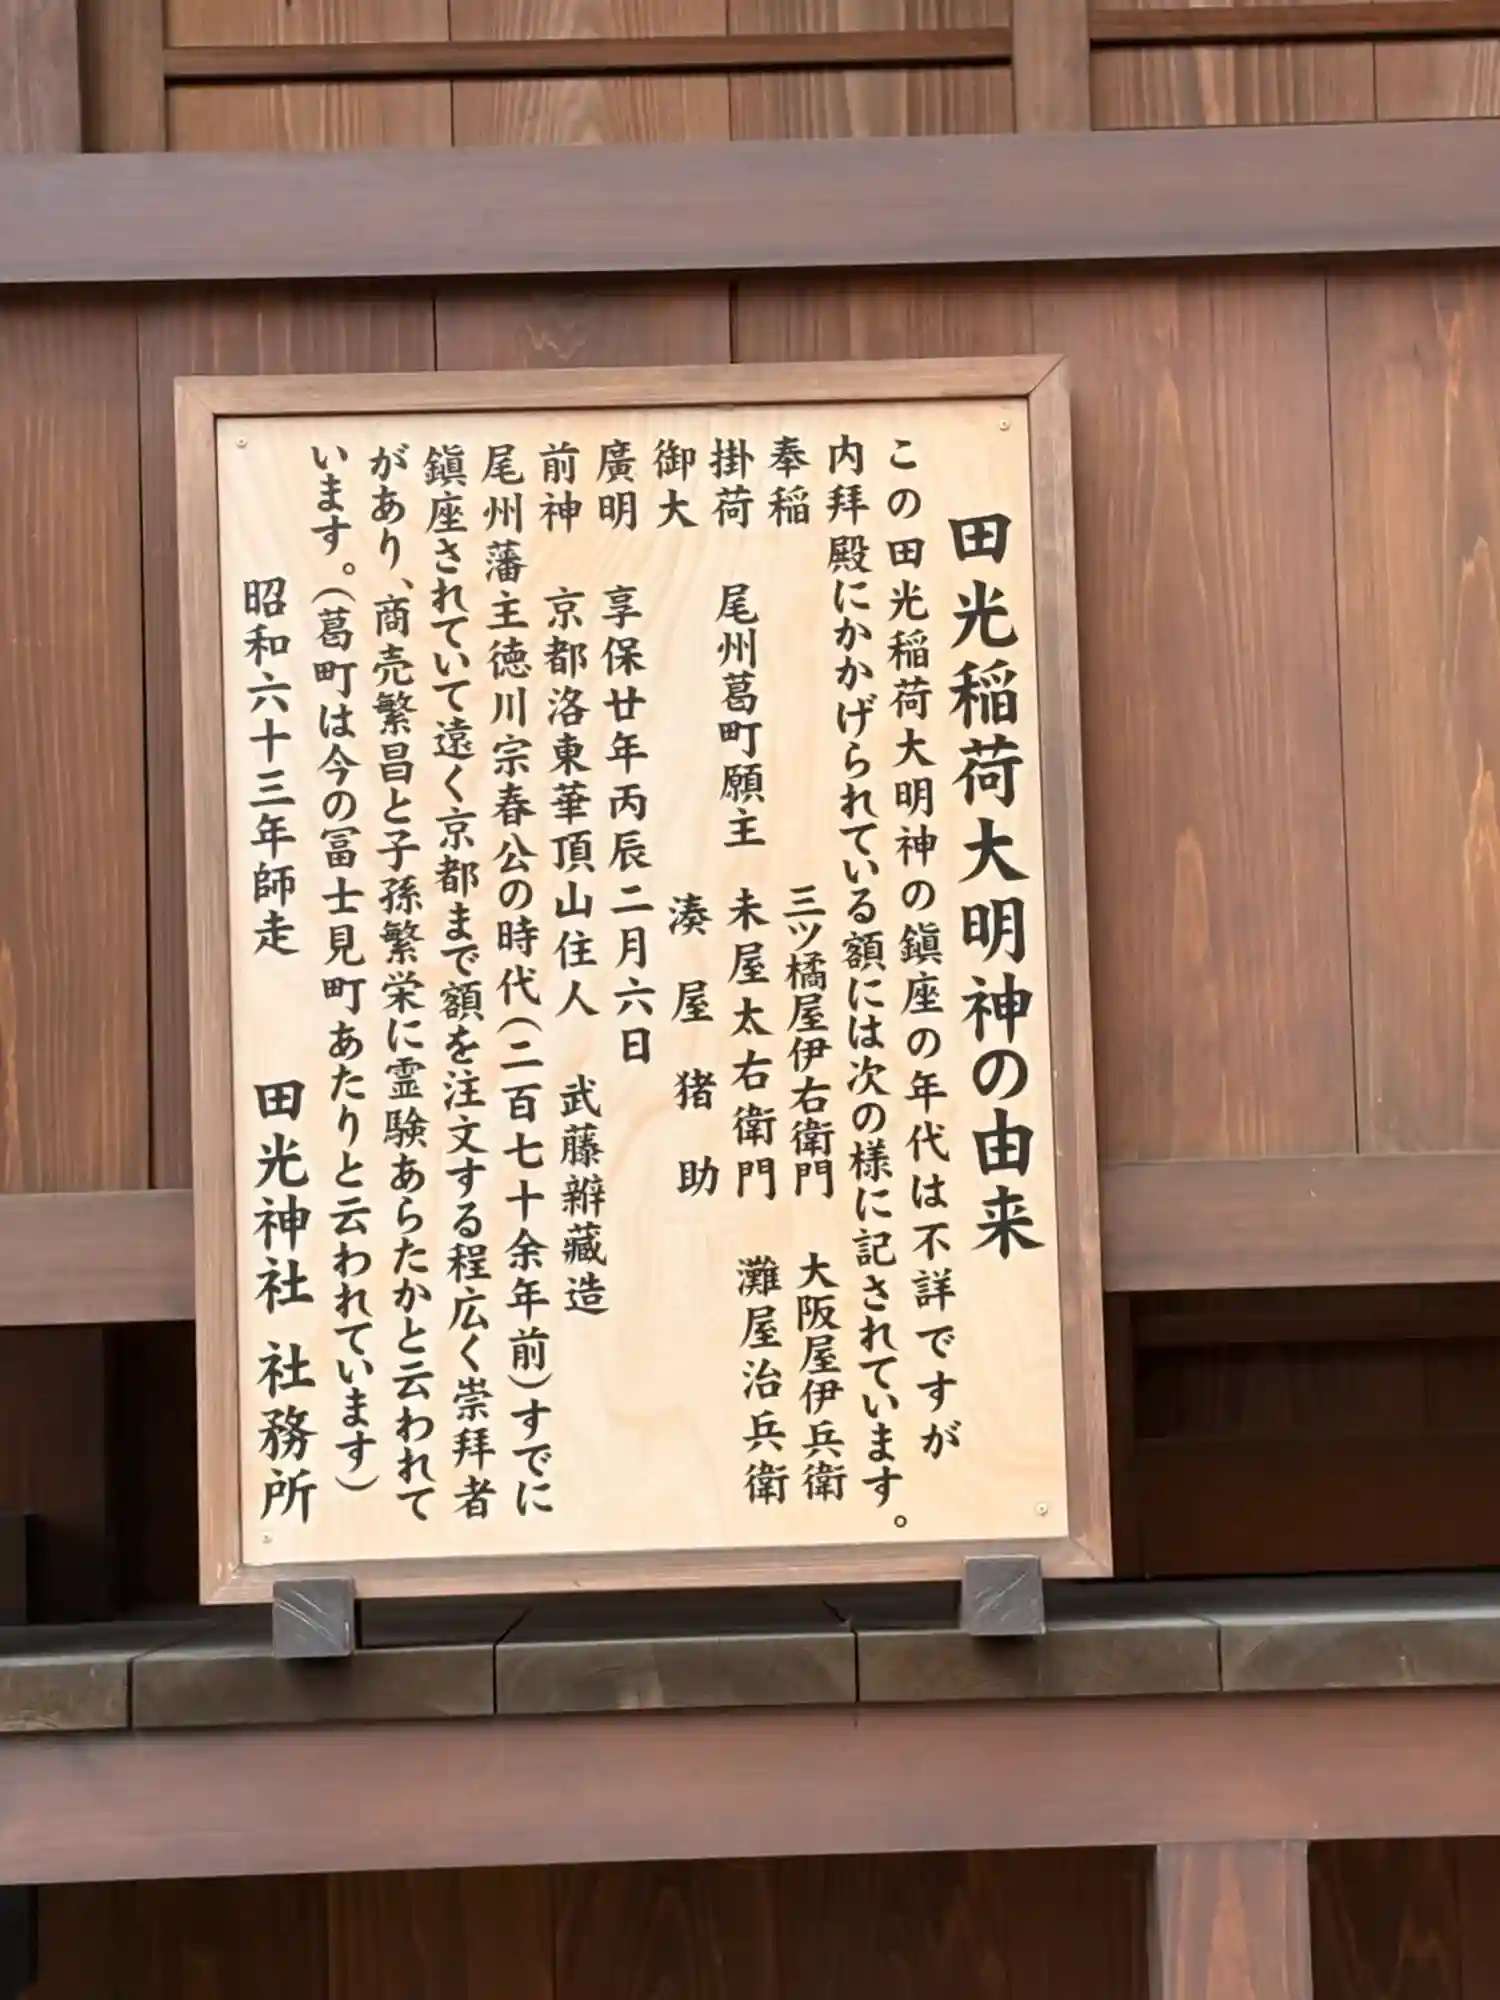 田光稲荷大明神の由来
この田光稲荷大明神の鎮座の年代は不詳ですが
内拝殿にかかげられている額には次の様に記されています。
奉稲 三ツ橘屋伊右衛門 大阪屋伊兵衛
掛荷 尾州葛町願主 未屋太右衛門 灘屋治兵衛
御大 湊屋猪助
廣明 享保廿年丙辰二月六日
前神 京都洛東華頂山住人 武藤辧藏造
尾州藩主徳川宗春公の時代(二百七十余年前)すでに
鎮座されていて遠く京都まで額を注文する程広く崇拝者
があり、商売繁昌と子孫繁栄に霊験あらたかと云われて
います。(葛町は今の冨士見町あたりと云われています)
昭和六十三年師走 田光神社 社務所